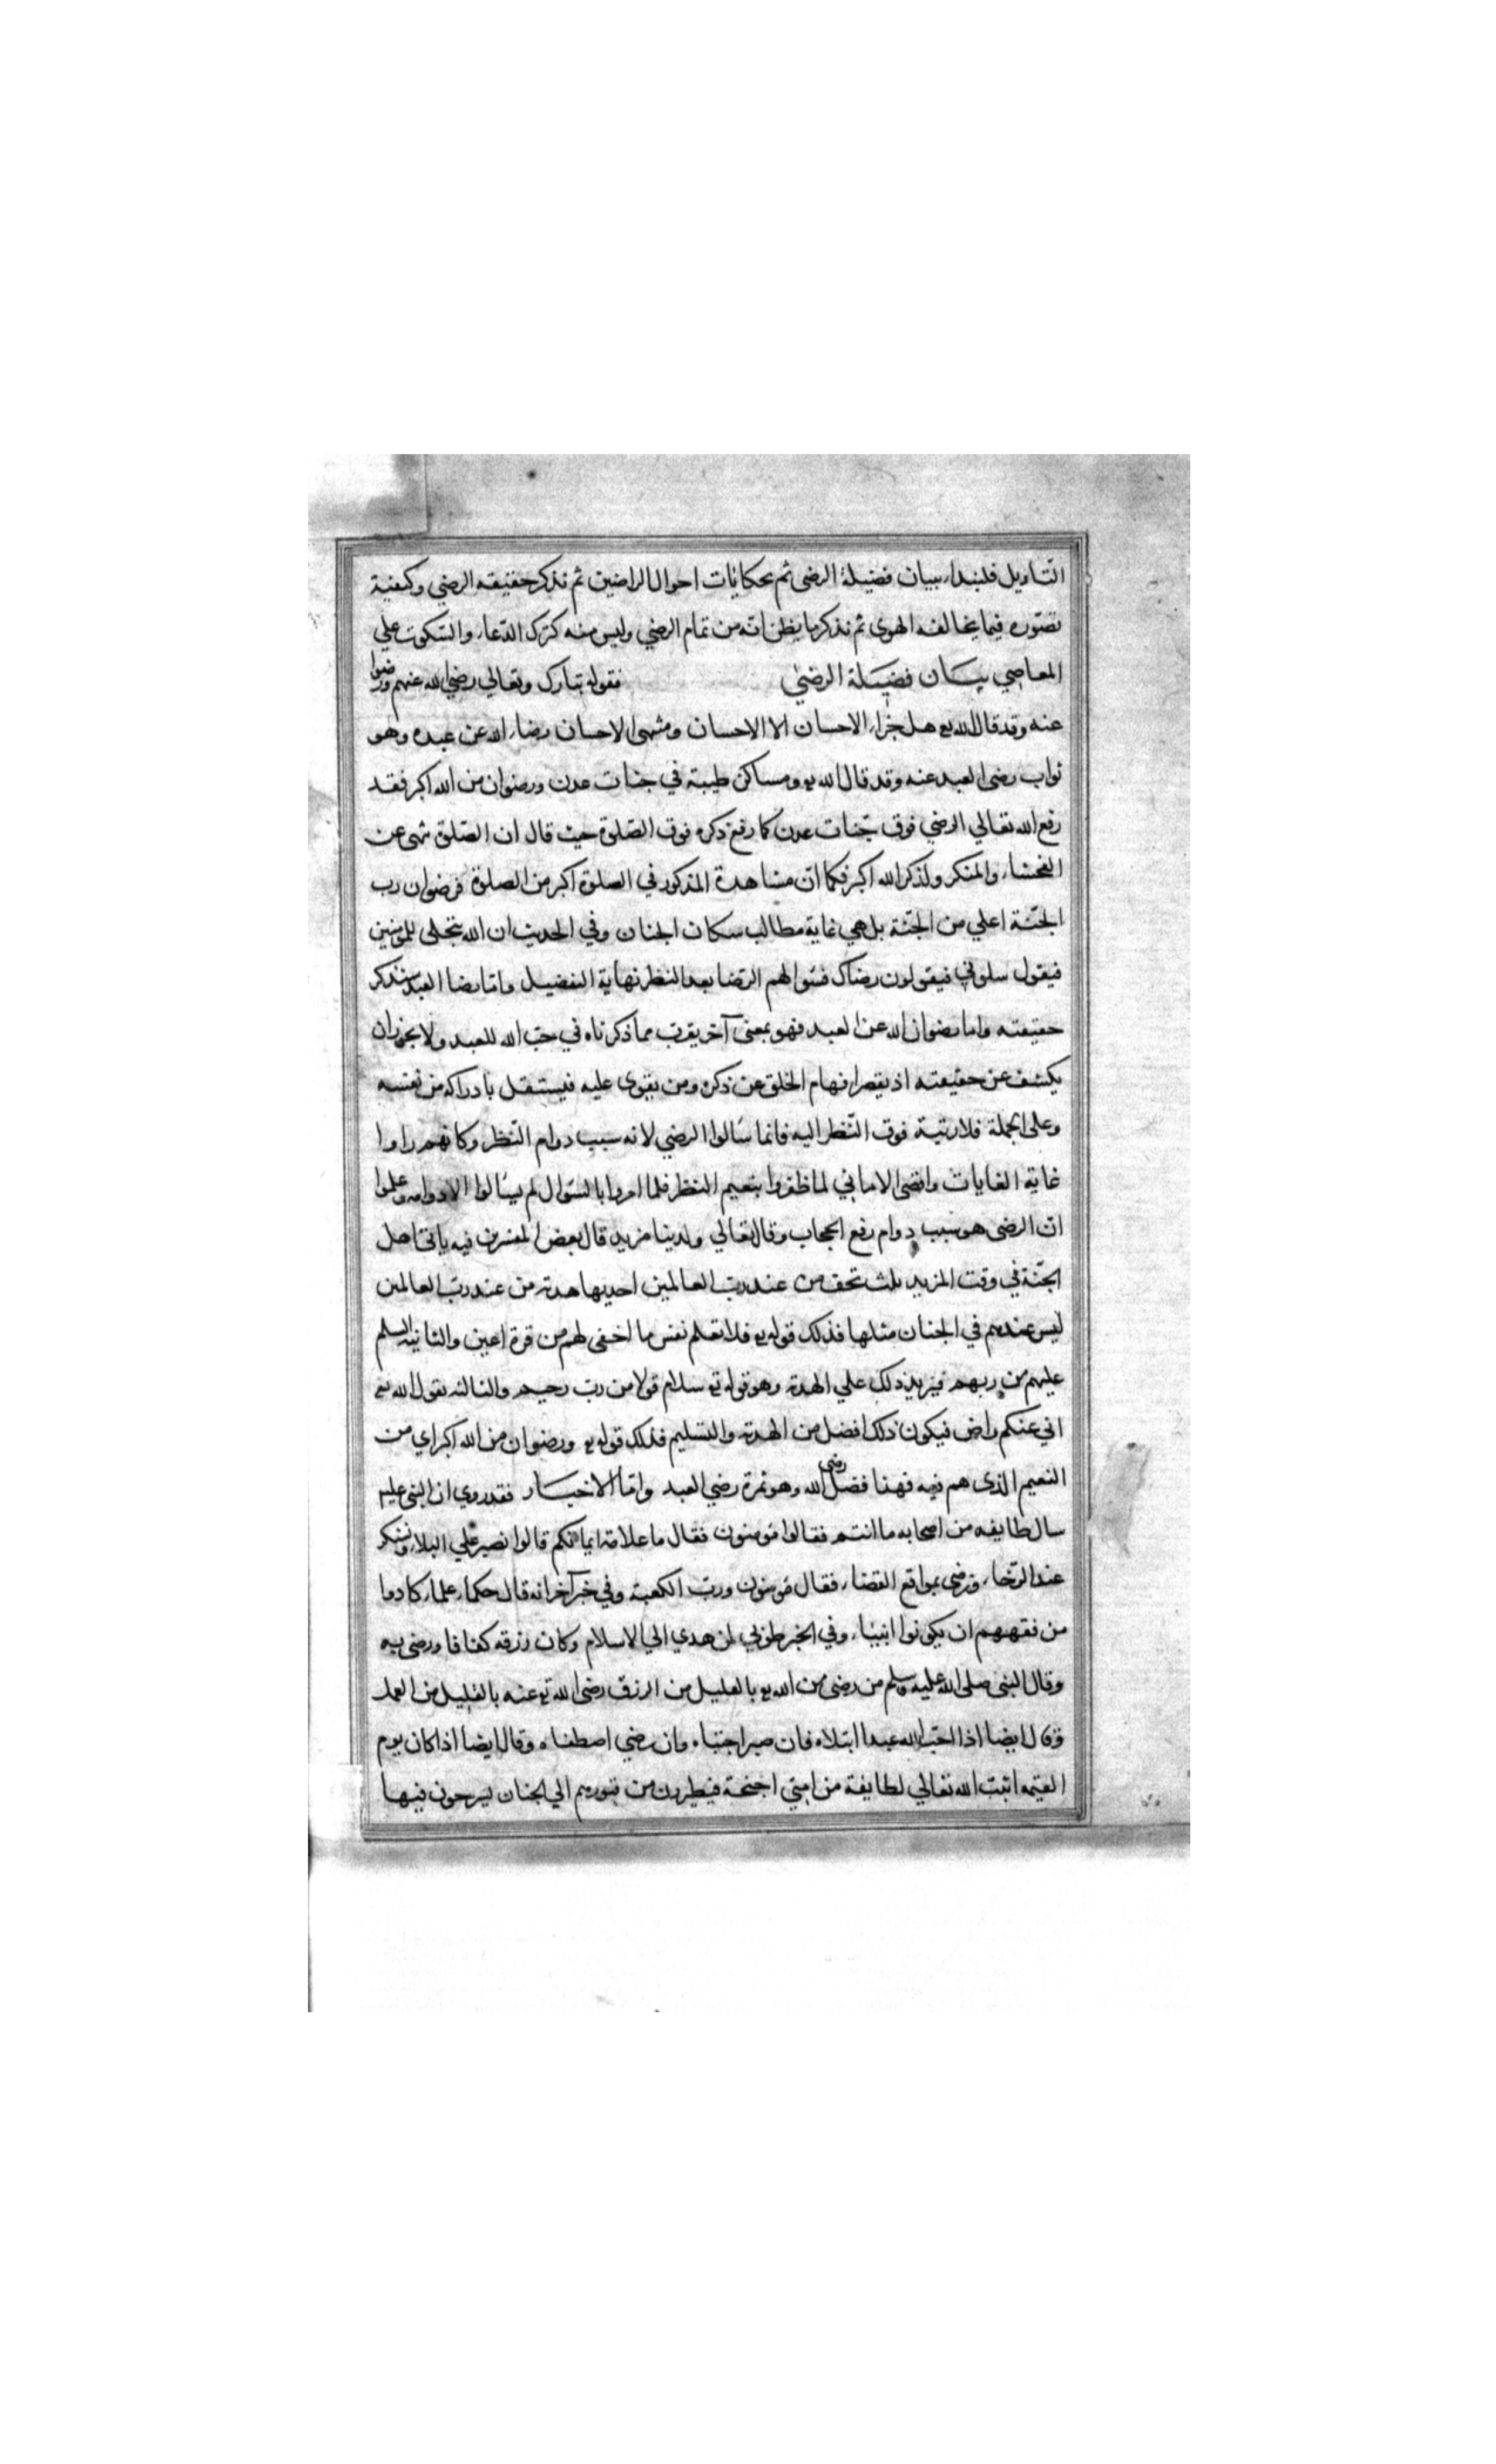 التاويل فلنبداء ببيان فضيلة الرضى ثم بحكايات احوال الراضين ثم نذكر حقيقه الرضي وكيفية
تصوره فيما يخالف الهوى ثم نذكر ما يظن انه من تمام الرضي وليس منه كترك الدعاء والسكوت علي
المعاصي بيان فضيلة الرضي فقوله تبارك وتعالي رضي الله عنهم ورضوا
عنه وقد قال الله تع هل جزاء الاحسان الا الاحسان ومنتهى الاحسان رضاء الله عن عبده وهو
ثواب رضى العبد عنه وقد قال الله تع ومساكن طيبة في جنات عدن ورضوان من الله اكبر فقد
رفع الله تعالي الرضي فوق جنات عدن كما رفع ذكره فوق الصلوة حيث قال ان الصلوة تنهى عن
الفحشاء والمنكر ولذكر الله اكبر فكما ان مشاهدة المذكور في الصلوة اكبر من الصلوة فرضوان رب
الجنة اعلي من الجنة بل هي غاية مطالب سكان الجنان وفي الحديث ان الله يتجلى للمؤمنين
فيقول سلوني فيقولون رضاك فسؤالهم الرضا بعد النظر نهاية التفضيل واما رضا العبد سنذكر
حقيقته واما رضوان الله عن العبد فهو بمعنى آخر يقرب مما ذكرناه في حب الله للعبد ولا يجوز ان
يكشف عن حقيقته اذ يقصر افهام الخلق عن ذكره ومن يقوى عليه فيستقل بادراكه من نفسه
وعلى الجملة فلا رتبة فوق النظر اليه فانما سالوا الرضي لانه سبب دوام النظر وكانهم راوا
غاية الغايات واقصى الاماني لما ظفروا بنعيم النظر فلما امروا بالسؤال لم يسالوا الا دوامه وعلموا
ان الرضى هو سبب دوام رفع الحجاب وقال تعالي ولدينا مزيد قال بعض المفسرين فيه ياتي اهل
الجنة في وقت المزيد ثلث تحف من عند رب العالمين احديها هدية من عند رب العالمين
ليس عندهم في الجنان مثلها فذلك قوله تع فلا تعلم نفس ما اخفى لهم من قرة اعين والثانيه السلم
عليهم من ربهم فيزيد ذلك علي الهدية وهو قوله تع سلام قولا من رب رحيم والثالثه يقول الله تع
اني عنكم راض فيكون ذلك افضل من الهدية والتسليم فذلك قوله تع ورضوان من الله اكبر اي من
النعيم الذي هم فيه فهذا فضل رضى الله وهو ثمرة رضي العبد واما الاخبار فقد روي ان النبى عليه
سال طايفه من اصحابه ما انتم فقالوا مؤمنون فقال ما علامة ايمانكم قالوا نصبر علي البلاء ونشكر
عند الرخاء ونرضى بمواقع القضاء فقال مؤمنون ورب الكعبة وفي خبر آخر انه قال حكماء علماء كادوا
من فقههم ان يكونوا انبياء وفي الخبر طوبي لمن هدي الي الاسلام وكان رزقه كفافا ورضى به
وقال النبى صلى الله عليه وسلم من رضى من الله تع بالقليل من الرزق رضى الله تع عنه بالقليل من العمل
وقال ايضا اذا احب الله عبدا ابتلاه فان صبر اجتباه وان رضي اصطفاه وقال ايضا اذا كان يوم
القيمه اثبت الله تعالي لطايفة من امتي اجنحة فيطيرون من قبورهم الي الجنان يسرحون فيها